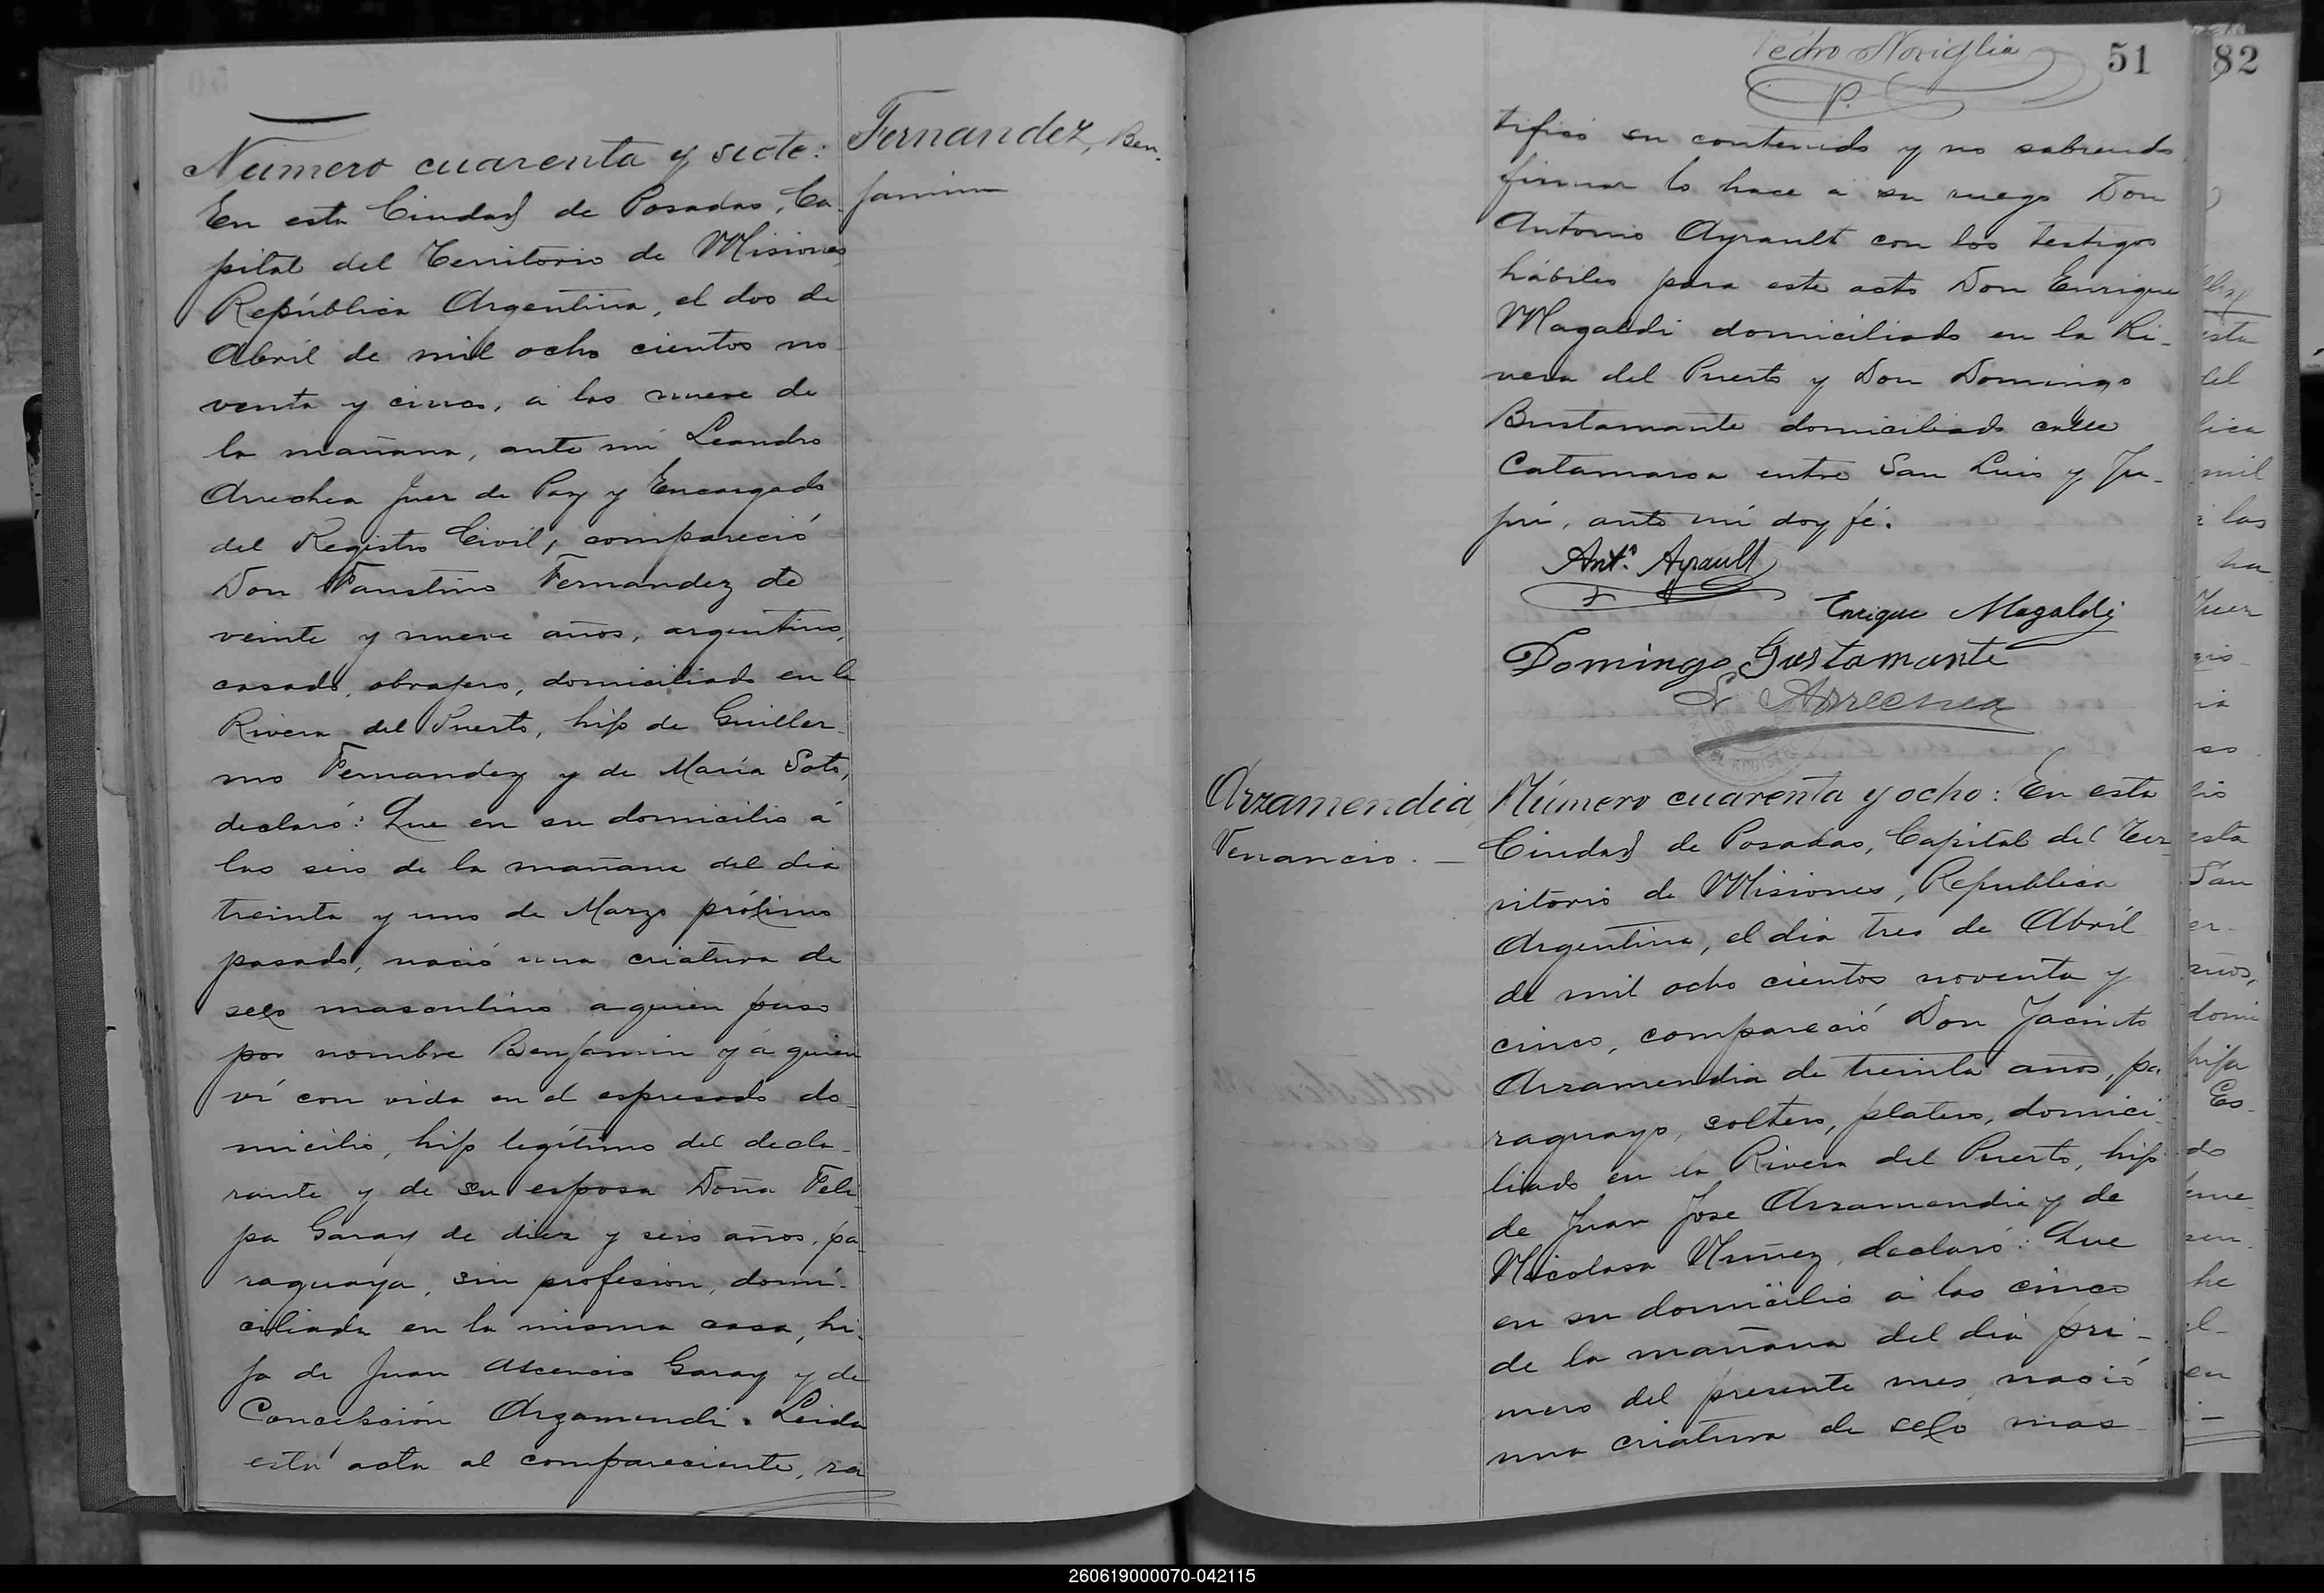 Número cuarenta y siete:
En esta Ciudad de Posadas, Ca-
pital del Territorio de Misiones
República Argentina, el dos de
Abril de mil ocho cientos no-
venta y cinco, á las nueve de
la mañana, ante mi Leandro
Arrechea Juez de Paz y Encargado
del Registro Civil, compareció
Don Faustino Fernandez de
veinte y nueve años, argentino,
casado, obrajero, domiciliado en la
Rivera del Puerto, hijo de Guiller-
mo Fernandez y de María Soto,
declaró: Que en su domicilio á
las seis de la mañana del dia
treinta y uno de Marzo próximo
pasado, nació una criatura de
sexo masculino a quien puso
por nombre Benjamin y á quien
ví con vida en el espresado do-
micilio, hijo legítimo del decla-
rante y de su esposa Doña Feli-
pa Garay de diez y seis años, pa-
raguaya, sin profesion, domi-
ciliada en la misma casa, hi-
ja de Juan Ascencio Garay y de
Concepción Arzamendi. Leida
esta acta al compareciente, ra-
Fernandez, Ben-
jamin
Pedro Noviglia
P.
51
82
tificó su contenido y no sabiendo
firmar lo hace á su ruego Don
Antonio Ayrault con los testigos
hábiles para este acto Don Enrique
Magaldi domiciliado en la Ri-
vera del Puerto y Don Domingo
Bustamante domiciliado calle
Catamarca entre San Luis y Ju-
juí, ante mí doy fé.
Ant.º Ayrault
Enrique Magaldi
Domingo Bustamante
L Arrechea
Arzamendia
Venancio. —
Número cuarenta y ocho: En esta
Ciudad de Posadas, Capital del Ter-
ritorio de Misiones, Republica
Argentina, el dia tres de Abril
de mil ocho cientos noventa y
cinco, compareció Don Jacinto
Arzamendia de treinta años, pa-
raguayo, soltero, platero, domici-
liado en la Rivera del Puerto, hijo
de Juan Jose Arzamendia y de
Nicolasa Nuñez, declaró: Que
en su domicilio á las cinco
de la mañana del dia pri-
mero del presente mes nació
una criatura de sexo mas-
260619000070-042115